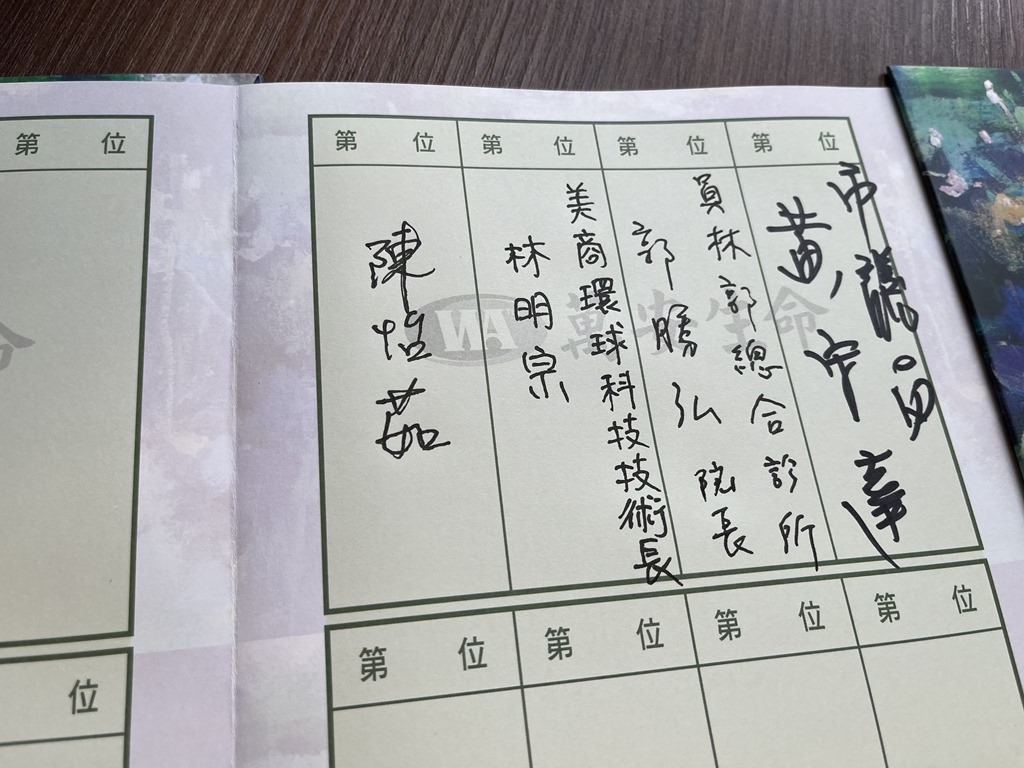 第 位
第 位
第 位
第 位
第 位
員林郭總合診所
郭勝弘 院長
美商環球科技技術長
林明宗
陳怡茹
WA 萬安生命
命
位
第 位
第 位
第 位
第 位